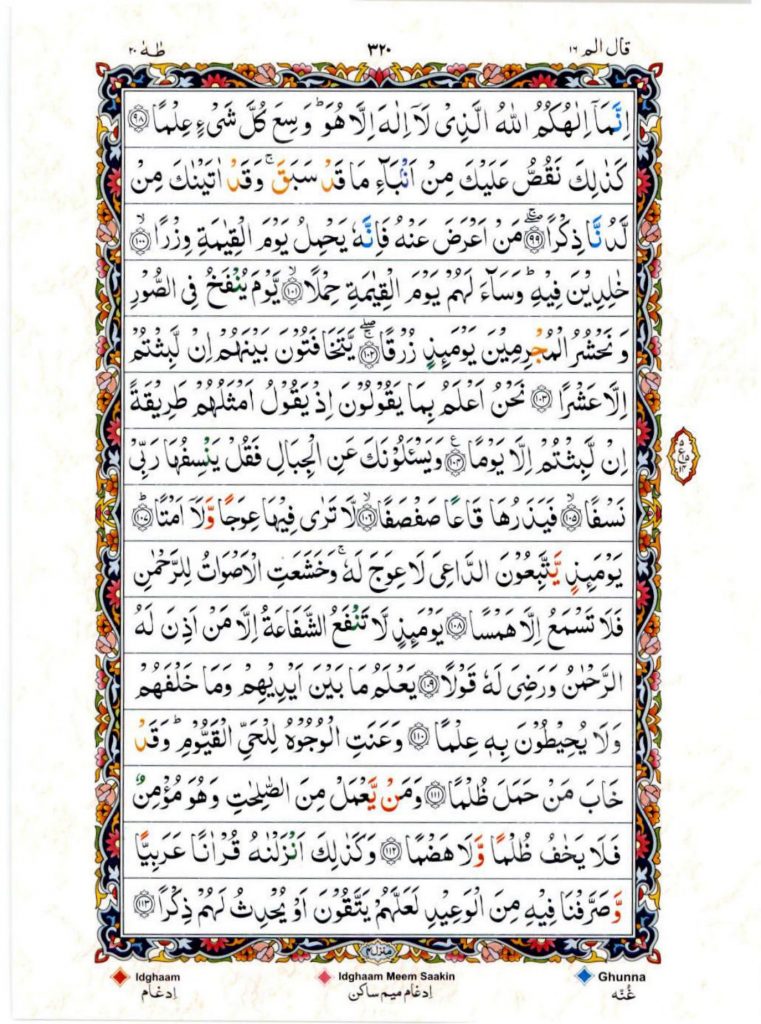 قال الم ١٦
٣٢٠
طٰهٰ ٢٠
اِنَّمَاۤ اِلٰهُكُمُ اللّٰهُ الَّذِیْ لَاۤ اِلٰهَ اِلَّا هُوَؕ وَسِعَ كُلَّ شَیْءٍ عِلْمًا ﴿٩٨﴾
كَذٰلِكَ نَقُصُّ عَلَیْكَ مِنْ اَنْۢبَآءِ مَا قَدْ سَبَقَۚ وَقَدْ اٰتَیْنٰكَ مِنْ
لَّدُنَّا ذِكْرًا ۖۚ ﴿٩٩﴾ مَنْ اَعْرَضَ عَنْهُ فَاِنَّهٗ یَحْمِلُ یَوْمَ الْقِیٰمَةِ وِزْرًا ۙ ﴿١٠٠﴾
خٰلِدِیْنَ فِیْهِؕ وَسَآءَ لَهُمْ یَوْمَ الْقِیٰمَةِ حِمْلًا ۙ ﴿١٠١﴾ یَّوْمَ یُنْفَخُ فِی الصُّوْرِ
وَنَحْشُرُ الْمُجْرِمِیْنَ یَوْمَىِٕذٍ زُرْقًا ۖۚ ﴿١٠٢﴾ یَّتَخَافَتُوْنَ بَیْنَهُمْ اِنْ لَّبِثْتُمْ
اِلَّا عَشْرًا ﴿١٠٣﴾ نَحْنُ اَعْلَمُ بِمَا یَقُوْلُوْنَ اِذْ یَقُوْلُ اَمْثَلُهُمْ طَرِیْقَةً
اِنْ لَّبِثْتُمْ اِلَّا یَوْمًا ۧ ﴿١٠٤﴾ وَیَسْـَٔلُوْنَكَ عَنِ الْجِبَالِ فَقُلْ یَنْسِفُهَا رَبِّیْ
نَسْفًا ۙ ﴿١٠٥﴾ فَیَذَرُهَا قَاعًا صَفْصَفًا ۙ ﴿١٠٦﴾ لَّا تَرٰی فِیْهَا عِوَجًا وَّلَاۤ اَمْتًا ؕ ﴿١٠٧﴾
یَوْمَىِٕذٍ یَّتَّبِعُوْنَ الدَّاعِیَ لَا عِوَجَ لَهٗۚ وَخَشَعَتِ الْاَصْوَاتُ لِلرَّحْمٰنِ
فَلَا تَسْمَعُ اِلَّا هَمْسًا ﴿١٠٨﴾ یَوْمَىِٕذٍ لَّا تَنْفَعُ الشَّفَاعَةُ اِلَّا مَنْ اَذِنَ لَهُ
الرَّحْمٰنُ وَرَضِیَ لَهٗ قَوْلًا ﴿١٠٩﴾ یَعْلَمُ مَا بَیْنَ اَیْدِیْهِمْ وَمَا خَلْفَهُمْ
وَلَا یُحِیْطُوْنَ بِهٖ عِلْمًا ﴿١١٠﴾ وَعَنَتِ الْوُجُوْهُ لِلْحَیِّ الْقَیُّوْمِؕ وَقَدْ
خَابَ مَنْ حَمَلَ ظُلْمًا ﴿١١١﴾ وَمَنْ یَّعْمَلْ مِنَ الصّٰلِحٰتِ وَهُوَ مُؤْمِنٌ
فَلَا یَخٰفُ ظُلْمًا وَّلَا هَضْمًا ﴿١١٢﴾ وَكَذٰلِكَ اَنْزَلْنٰهُ قُرْاٰنًا عَرَبِیًّا
وَّصَرَّفْنَا فِیْهِ مِنَ الْوَعِیْدِ لَعَلَّهُمْ یَتَّقُوْنَ اَوْ یُحْدِثُ لَهُمْ ذِكْرًا ﴿١١٣﴾
منزل ٤
Idghaam
Idghaam Meem Saakin
Ghunna
اِدغَام
اِدغَام میم ساکن
غُنّه